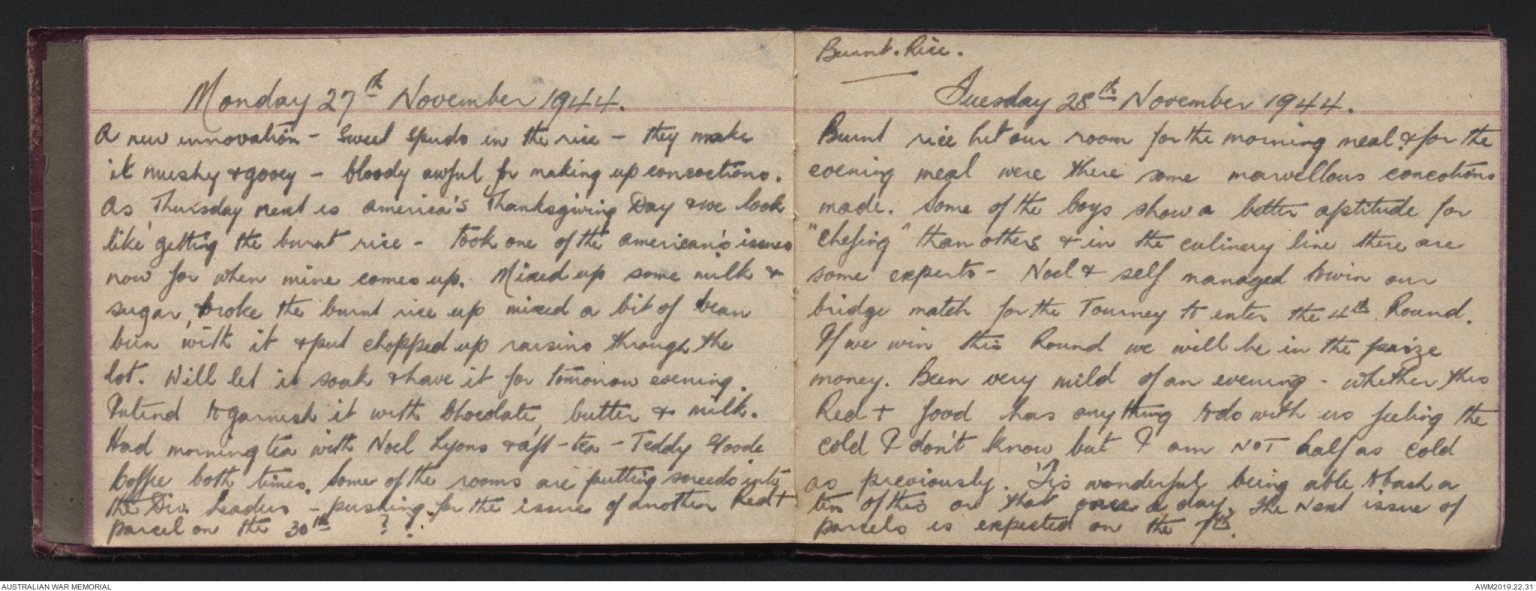 Monday 27th November 1944.
A new innovation - Sweet Spuds in the rice - they make
it mushy & gooey - bloody awful for making up concoctions.
As Thursday next is America's Thanksgiving Day & we look
like getting the burnt rice - took one of the american's issues
now for when mine comes up. Mixed up some milk &
sugar, broke the burnt rice up mixed a bit of bean
bun with it & put chopped up raisins through the
lot. Will let it soak & have it for tomorrow evening.
Intend to garnish it with Chocolate, butter & milk.
Had morning tea with Noel Lyons & aft-tea - Teddy Goode
Coffee both times. Some of the rooms are putting screeds into
the Div. Leaders - pushing for the issue of another Red +
parcel on the 30th ? ? .
Burnt. Rice.
Tuesday 28th November 1944.
Burnt rice hit our room for the morning meal & for the
evening meal were there some marvellous concotions
made. Some of the boys show a better aptitude for
"Chefing" than others & in the culinery line there are
some experts - Noel & self managed to win our
bridge match for the Tourney to enter the 4th Round.
If we win this Round we will be in the prize
money. Been very mild of an evening - whether this
Red + food has anything to do with us feeling the
cold I don't know but I am NOT half as cold
as previously. 'Tis wonderful being able to bash a
tin of this or that once a day. The Next issue of
parcels is expected on the 7th.
AUSTRALIAN WAR MEMORIAL
AWM2019.22.31